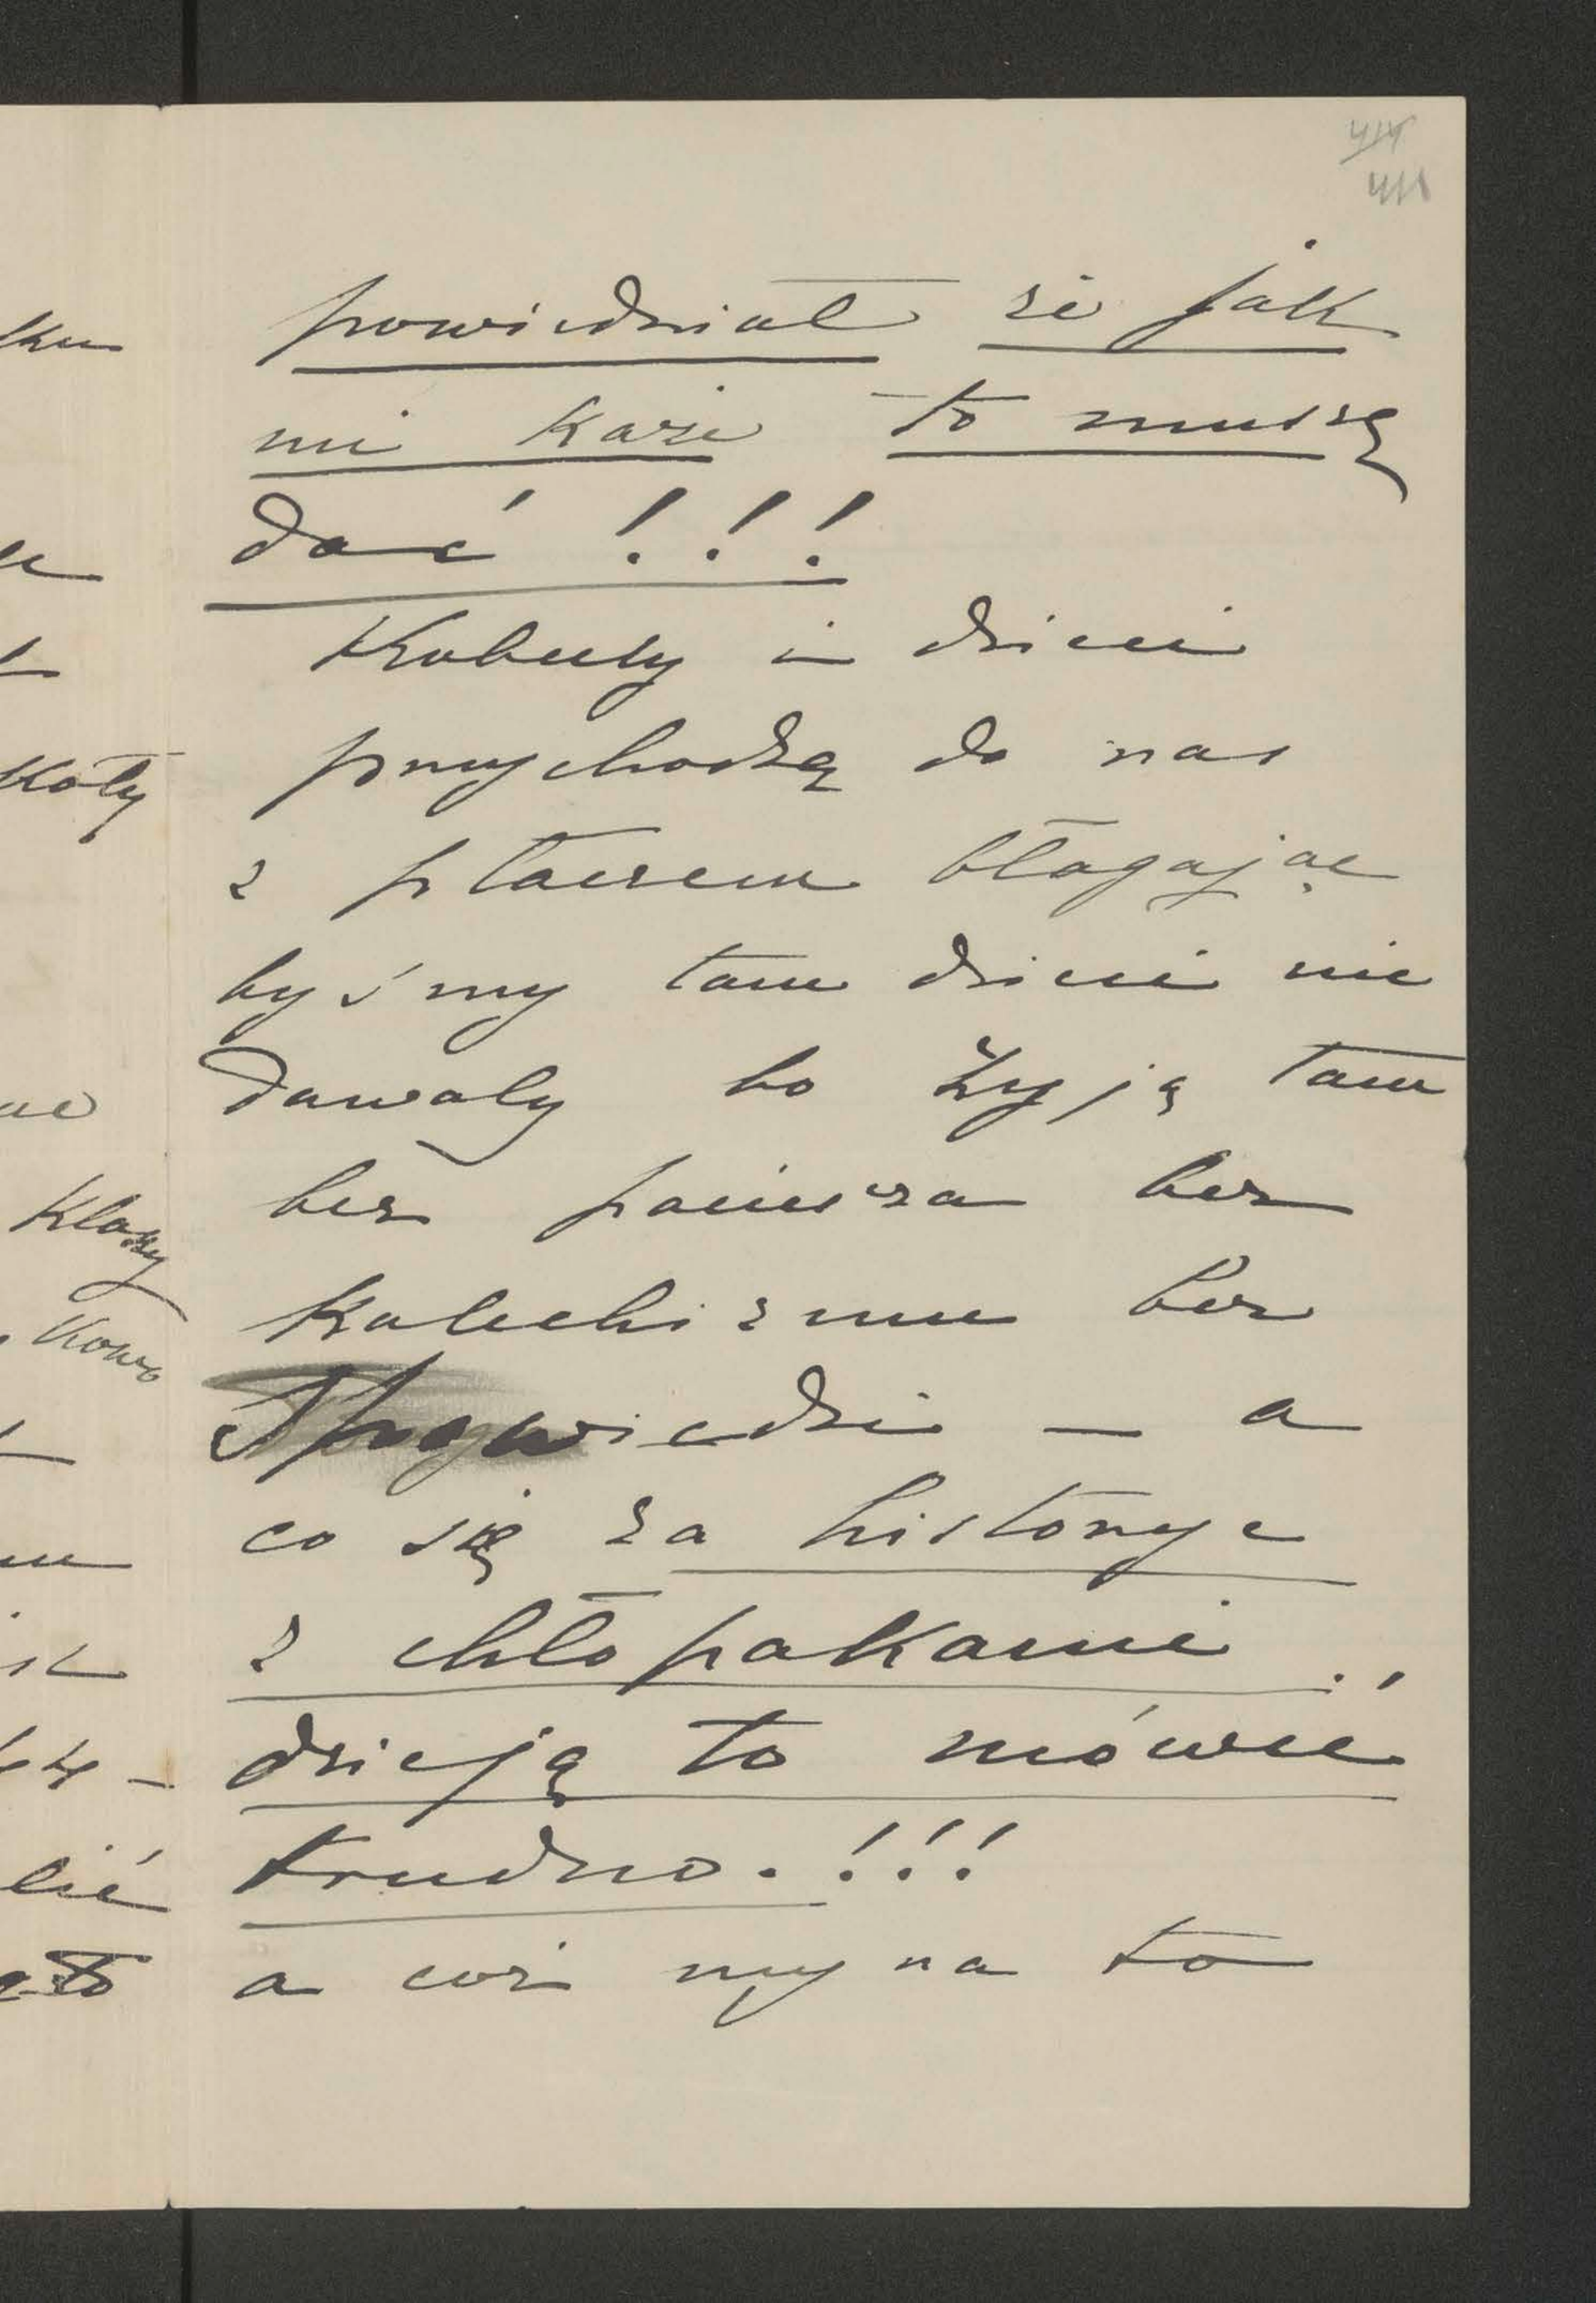 powiedział że jak
mi każe to muszę
dać!!!
Kobiety i dzieci
przychodzą do nas
z płaczem błagając
byśmy tam dzieci nie
dawały bo żyją tam
bez pacierza bez
Katechizmu bez
Spowiedzi – a
co się za historye
z chłopakami
dzieją to mówić
trudno.!!!
a cóż my na to